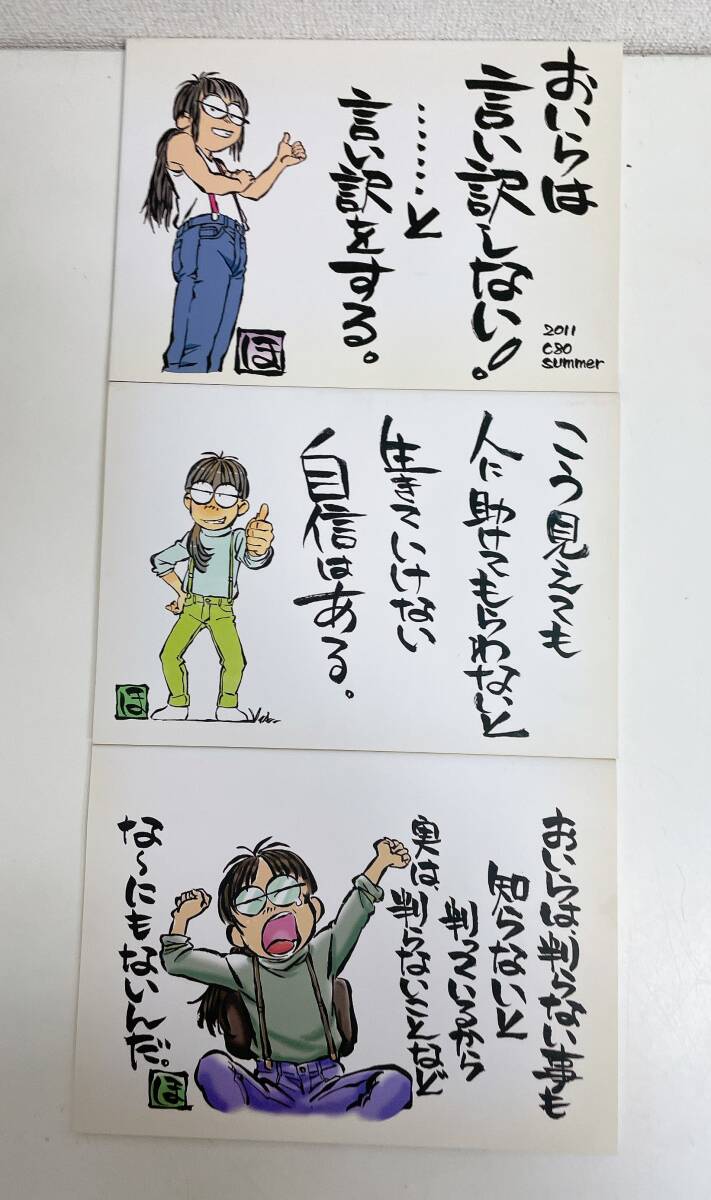 おいらは
言い訳しない！
………と
言い訳をする。
2011
C80
summer
ほ
こう見えても
人に助けてもらわないと
生きていけない
自信はある。
ほ
おいらは、判らない事も
知らないと
判っているから
実は、判らないことなど
な～にもないんだ。
ほ